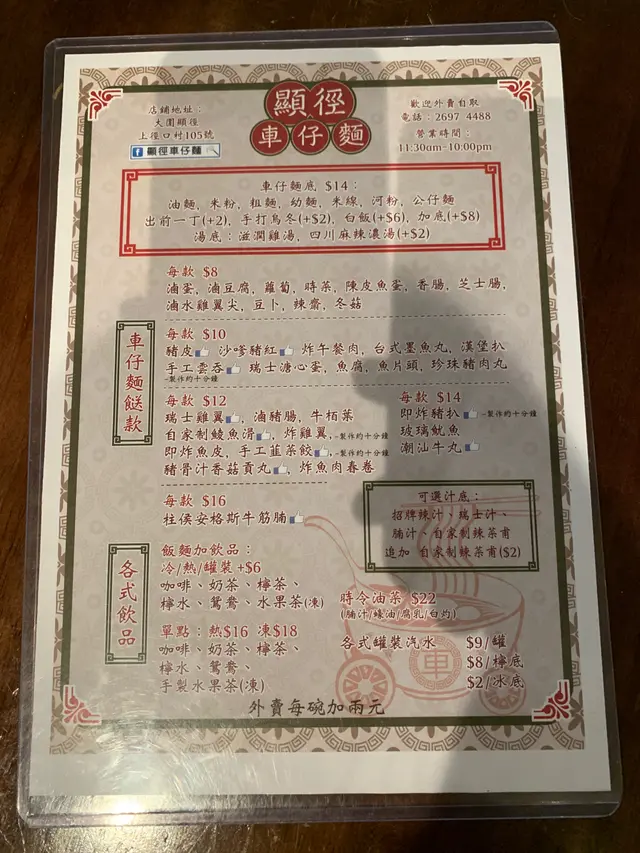 顯徑
車仔麵
店鋪地址：
大圍顯徑
上徑口村105號
顯徑車仔麵
歡迎外賣自取
電話：2697 4488
營業時間：
11:30am-10:00pm
車仔麵底 $14：
油麵, 米粉, 粗麵, 幼麵, 米線, 河粉, 公仔麵
出前一丁(+2), 手打烏冬(+$2), 白飯(+$6), 加底(+$8)
湯底：滋潤雞湯, 四川麻辣濃湯(+$2)
車仔麵餸款
每款 $8
滷蛋, 滷豆腐, 蘿蔔, 時菜, 陳皮魚蛋, 香腸, 芝士腸,
滷水雞翼尖, 豆卜, 辣齋, 冬菇
每款 $10
豬皮, 沙嗲豬紅, 炸午餐肉, 台式墨魚丸, 漢堡扒
手工雲吞, 瑞士溏心蛋, 魚腐, 魚片頭, 珍珠豬肉丸
-製作約十分鐘
每款 $12
瑞士雞翼, 滷豬腸, 牛栢葉
自家制鯪魚滑, 炸雞翼, -製作約十分鐘
即炸魚皮, 手工韮菜餃, -製作約十分鐘
豬骨汁香菇貢丸, 炸魚肉春卷
每款 $14
即炸豬扒 -製作約十分鐘
玻璃魷魚
潮汕牛丸
每款 $16
柱侯安格斯牛筋腩
可選汁底：
招牌辣汁、瑞士汁、
腩汁、自家制辣菜甫
追加 自家制辣菜甫($2)
各式飲品
飯麵加飲品：
冷/熱/罐裝 +$6
咖啡、奶茶、檸茶、
檸水、鴛鴦、水果茶(凍)
單點：熱$16 凍$18
咖啡、奶茶、檸茶、
檸水、鴛鴦、
手製水果茶(凍)
時令油菜 $22
(腩汁/蠔油/腐乳/白灼)
各式罐裝汽水 $9/罐
$8/檸底
$2/冰底
車
外賣每碗加兩元